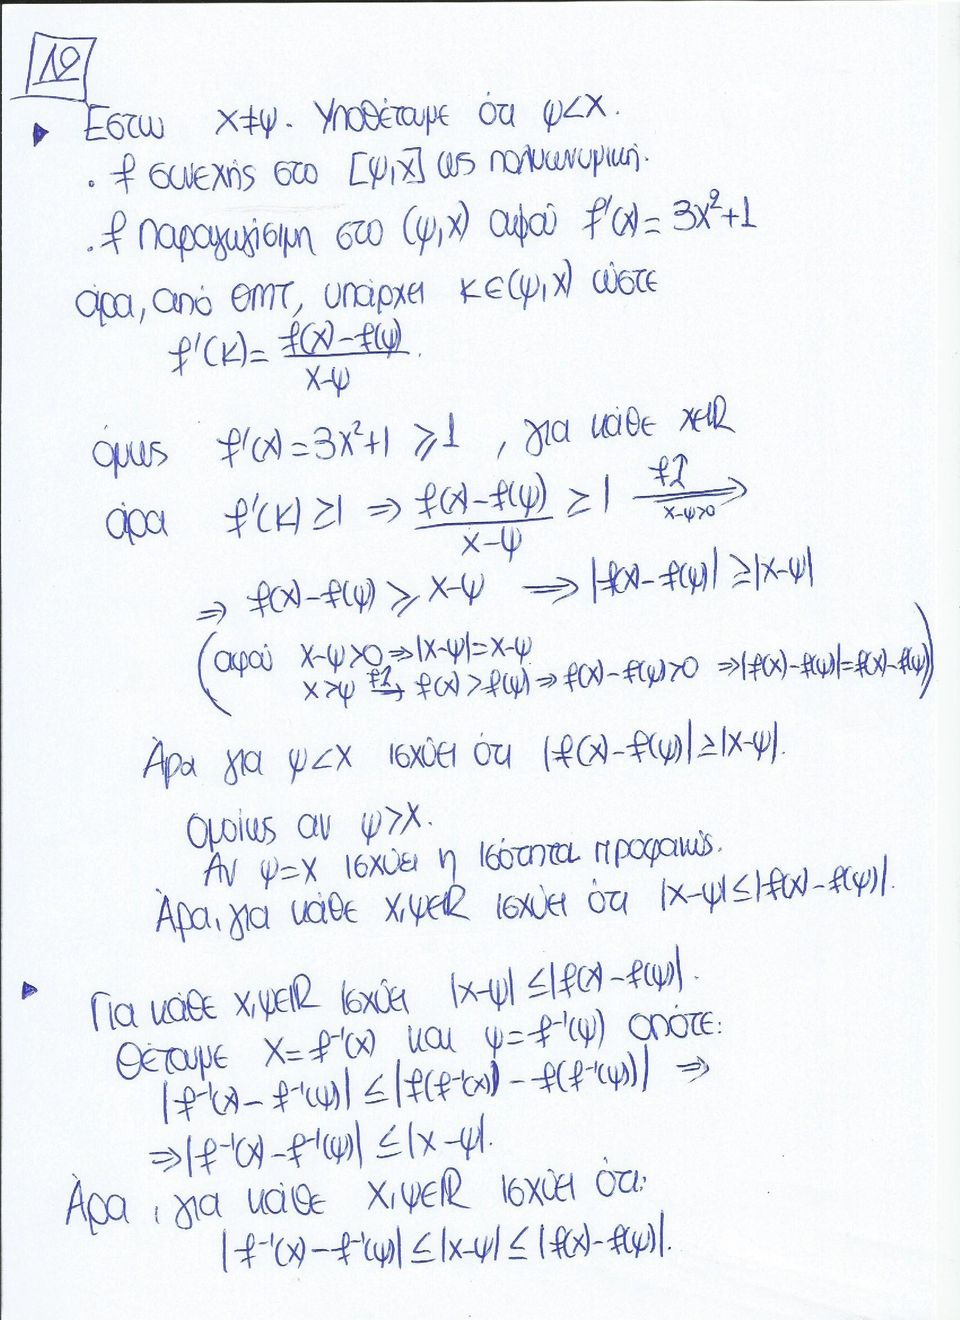 12
Έστω x≠ψ. Υποθέτουμε ότι ψ<x.
. f συνεχής στο [ψ,x] ως πολυωνυμική.
. f παραγωγίσιμη στο (ψ,x) αφού f'(x)=3x²+1
άρα, από ΘΜΤ, υπάρχει κ∈(ψ,x) ώστε
f'(κ)= (f(x)-f(ψ))/(x-ψ).
όμως f'(x)=3x²+1 ≥1, για κάθε x∈ℝ
άρα f'(κ)≥1 ⇒ (f(x)-f(ψ))/(x-ψ) ≥1 f↑ ⟹ x-ψ>0
⇒ f(x)-f(ψ)≥x-ψ ⟹ |f(x)-f(ψ)|≥|x-ψ|
(αφού x-ψ>0⇒|x-ψ|=x-ψ
x>ψ f↑⇒ f(x)>f(ψ)⇒f(x)-f(ψ)>0 ⇒|f(x)-f(ψ)|=f(x)-f(ψ))
Άρα για ψ<x ισχύει ότι |f(x)-f(ψ)|≥|x-ψ|.
Ομοίως αν ψ>x.
Αν ψ=x ισχύει η ισότητα προφανώς.
Άρα, για κάθε x,ψ∈ℝ ισχύει ότι |x-ψ|≤|f(x)-f(ψ)|.
Για κάθε x,ψ∈ℝ ισχύει |x-ψ|≤|f(x)-f(ψ)|.
Θέτουμε x=f⁻¹(x) και ψ=f⁻¹(ψ) οπότε:
|f⁻¹(x)-f⁻¹(ψ)|≤|f(f⁻¹(x))-f(f⁻¹(ψ))| ⇒
⇒|f⁻¹(x)-f⁻¹(ψ)|≤|x-ψ|.
Άρα, για κάθε x,ψ∈ℝ ισχύει ότι:
|f⁻¹(x)-f⁻¹(ψ)|≤|x-ψ|≤|f(x)-f(ψ)|.